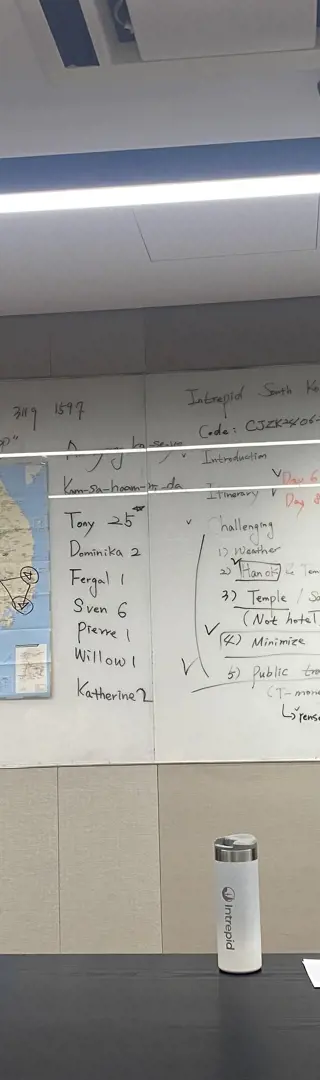 3119 1597
pp"
Kam-sa-haam-ni-da
Tony 25
Dominika 2
Fergal 1
Sven 6
Pierre 1
Willow 1
Katherine 2
Intrepid South Ko
Code: CJZK2406-
Introduction
Itinerary Day 6
Day 8
Challenging
1) Weather
2) Hanok
3) Temple /
(Not hotel)
4) Minimize
5) Public tra
(T-mone
Intrepid